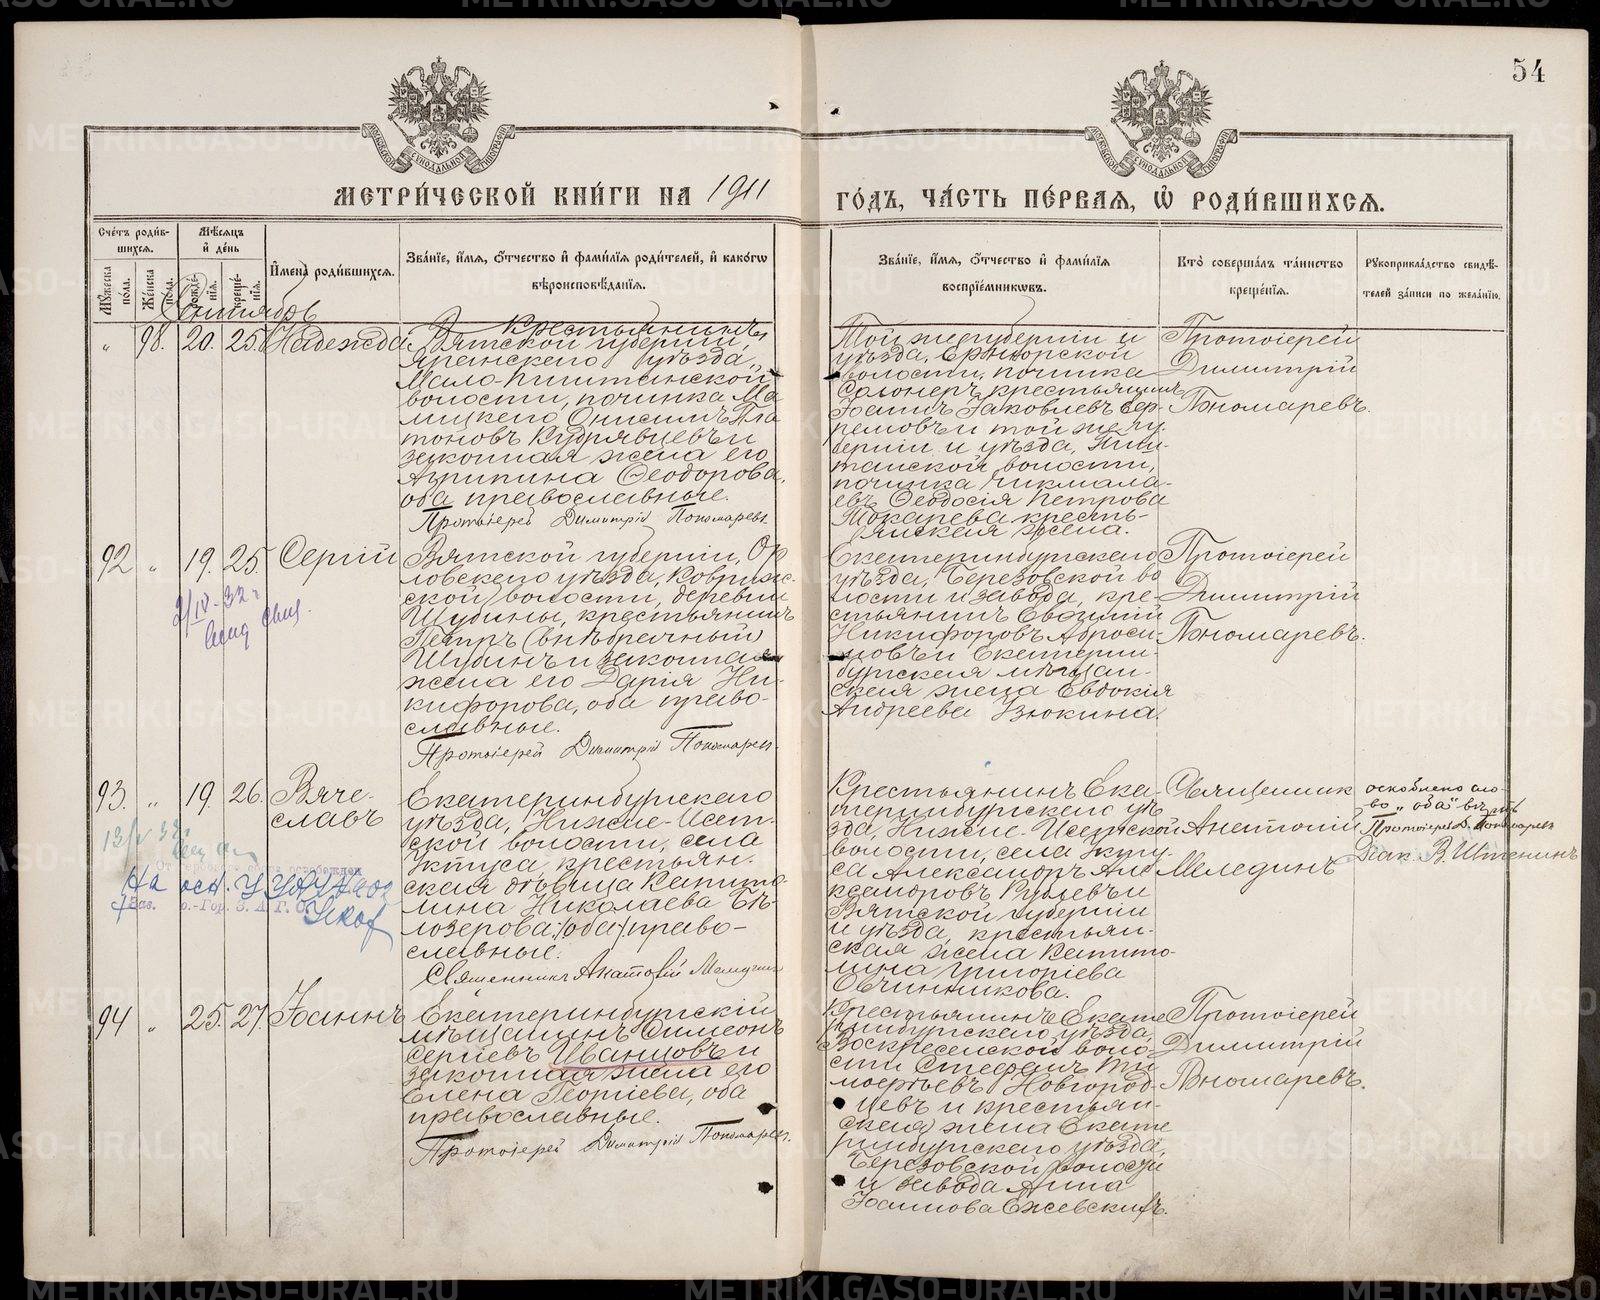 54
МЕТРИ́ЧЕСКОЙ КНИ́ГИ НА 1911 ГО́ДЪ, ЧА́СТЬ ПЕ́РВАЯ, Ѽ РОДИ́ВШИХСЯ.
Сче́тъ роди́в-
шихся.
Мꙋ́жеска пола.
Же́нска пола.
Мѣ́сяцъ
и҆ де́нь
рожде́нїя.
креще́нїя.
И҆мена̀ роди́вшихся.
Зва́нїе, и҆́мя, ѻ҆́тчество и҆ фами́лїя роди́телей, и҆ како́гѡ
вѣроисповѣ́данїя.
Зва́нїе, и҆́мя, ѻ҆́тчество и҆ фами́лїя
воспрїе́мникѡвъ.
Кто̀ соверша́лъ та́инство
креще́нїя.
Рꙋкоприкла́дство свидѣ́-
телей за́писи по жела́нїю.
Сентябрь
„ 98. 20. 25. Надежда
Крестьянинъ
Вятской губерніи,
Яранскаго уѣзда,
Мало-Пиштанской
волости, починка Ма-
лицкаго Онисимъ Пла-
тоновъ Кудрявцевъ и
законная жена его
Агрипина Ѳеодорова,
оба православные.
Протоіерей Димитрій Пономаревъ
Той же губерніи и
уѣзда,
волости, починка
крестьянинъ
Іоаннъ Іаковлевъ Еф-
ремовъ и той же гу-
берніи и уѣзда, Пиш-
танской волости,
починка Чикмала-
евъ Ѳеодосія Петрова
Токарева крестья-
янская жена.
Протоіерей
Димитрій
Пономаревъ.
92 „ 19. 25. Сергій
Вятской губерніи, Ор-
ловскаго уѣзда, Коврижс-
кой волости, деревни
Шубины, крестьянинъ
Петръ (внѣбрачный)
Шубинъ и законная
жена его Дарія Ни-
кифорова, оба право-
славные.
Протоіерей Димитрій Пономаревъ
Екатеринбургскаго
уѣзда, Березовской во-
лости и завода, кре-
стьянинъ Евѳимій
Никифоровъ Аброси-
мовъ и Екатерин-
бургская мѣщан-
ская жена Евдокія
Андреева Узюкина.
Протоіерей
Димитрій
Пономаревъ.
2/IV-32г
93. „ 19. 26. Вяче-
славъ
Екатеринбургскаго
уѣзда, Нижне-Исет-
ской волости, села
Уктуса крестьян-
ская дѣвица Капито-
лина Николаева Бѣ-
лозерова /оба/ право-
славные.
Священникъ Анатолій Мелединъ
Крестьянинъ Ека-
теринбургскаго уѣ-
зда, Нижне-Исетской
волости, села Укту-
са Александръ Але-
ксандровъ Рублевъ и
Вятской губерніи
и уѣзда, крестьян-
ская жена Капито-
лина Григоріева
Овчинникова.
Священникъ
Анатолій
Мелединъ
оскоблено сло-
во „оба"
Протоіерей Д. Пономаревъ
Діак. В.
13/V 32г
На осн.
94 „ 25. 27. Іоаннъ
Екатеринбургскій
мѣщанинъ Симеонъ
Сергіевъ Иванцовъ и
законная жена его
Елена Георгіева, оба
православные.
Протоіерей Димитрій Пономаревъ.
Крестьянинъ Екате-
ринбургскаго уѣзда,
Воскресенской воло-
сти Стефанъ Ти-
моѳеевъ Новгород-
цевъ и крестьян-
ская жена Екате-
ринбургскаго уѣзда,
Березовской волости
и завода Анна
Іоаннова Ежевскихъ.
Протоіерей
Димитрій
Пономаревъ.
METRIKI.GASO-URAL.RU